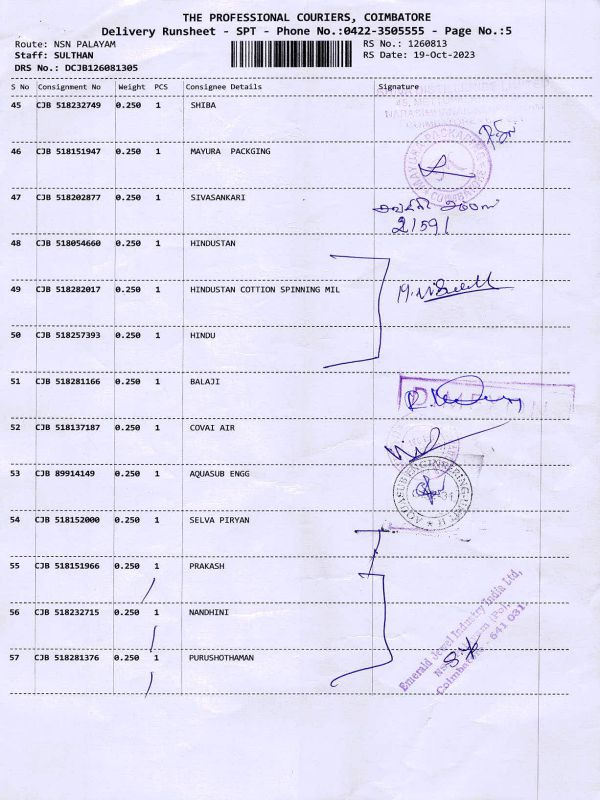 THE PROFESSIONAL COURIERS, COIMBATORE
Delivery Runsheet - SPT - Phone No.:0422-3505555 - Page No.:5
Route: NSN PALAYAM RS No.: 1260813
Staff: SULTHAN RS Date: 19-Oct-2023
DRS No.: DCJB126081305
S No Consignment No Weight PCS Consignee Details Signature
45 CJB 518232749 0.250 1 SHIBA
COIMBATORE
46 CJB 518151947 0.250 1 MAYURA PACKGING
MAYURA PACKAGING COIMBATORE
47 CJB 518202877 0.250 1 SIVASANKARI
21591
48 CJB 518054660 0.250 1 HINDUSTAN
49 CJB 518282017 0.250 1 HINDUSTAN COTTION SPINNING MIL
50 CJB 518257393 0.250 1 HINDU
51 CJB 518281166 0.250 1 BALAJI
52 CJB 518137187 0.250 1 COVAI AIR
53 CJB 89914149 0.250 1 AQUASUB ENGG
AQUASUB ENGINEERING
54 CJB 518152000 0.250 1 SELVA PIRYAN
55 CJB 518151966 0.250 1 PRAKASH
56 CJB 518232715 0.250 1 NANDHINI
57 CJB 518281376 0.250 1 PURUSHOTHAMAN
Emerald Jewel Industry India Ltd,
Coimbatore - 641 031.